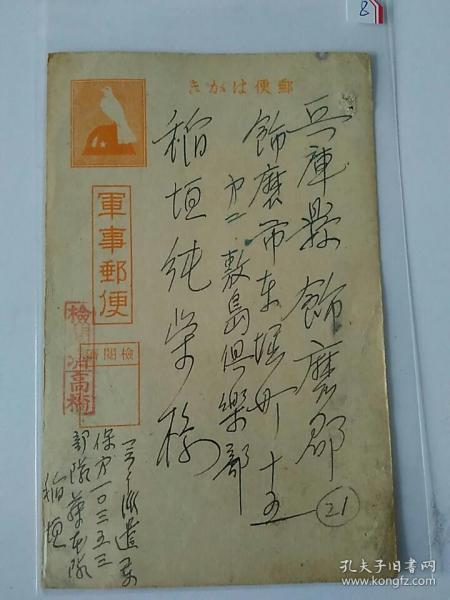 8
郵便はがき
兵庫縣飾磨郡
飾磨市東堀町十五
敷島倶樂部
稲垣純榮様
21
軍事郵便
檢閲濟
高橋
派遣
保カ一〇三五三
部隊藤本隊
稲垣
孔夫子旧书网
kongfz.com